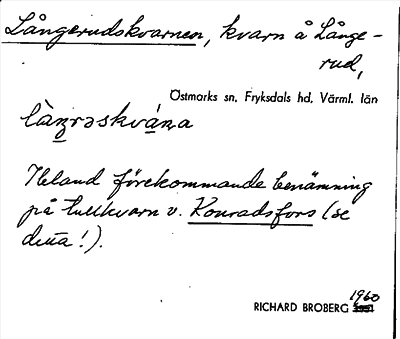 Långerudskvarnen, kvarn å Långe-
rud,
Östmarks sn, Fryksdals hd, Värml. län
làŋrəskvá̱ṇa
Ibland förekommande benämning
på tullkvarn v. Konradsfors (se
detta!).
1960
RICHARD BROBERG